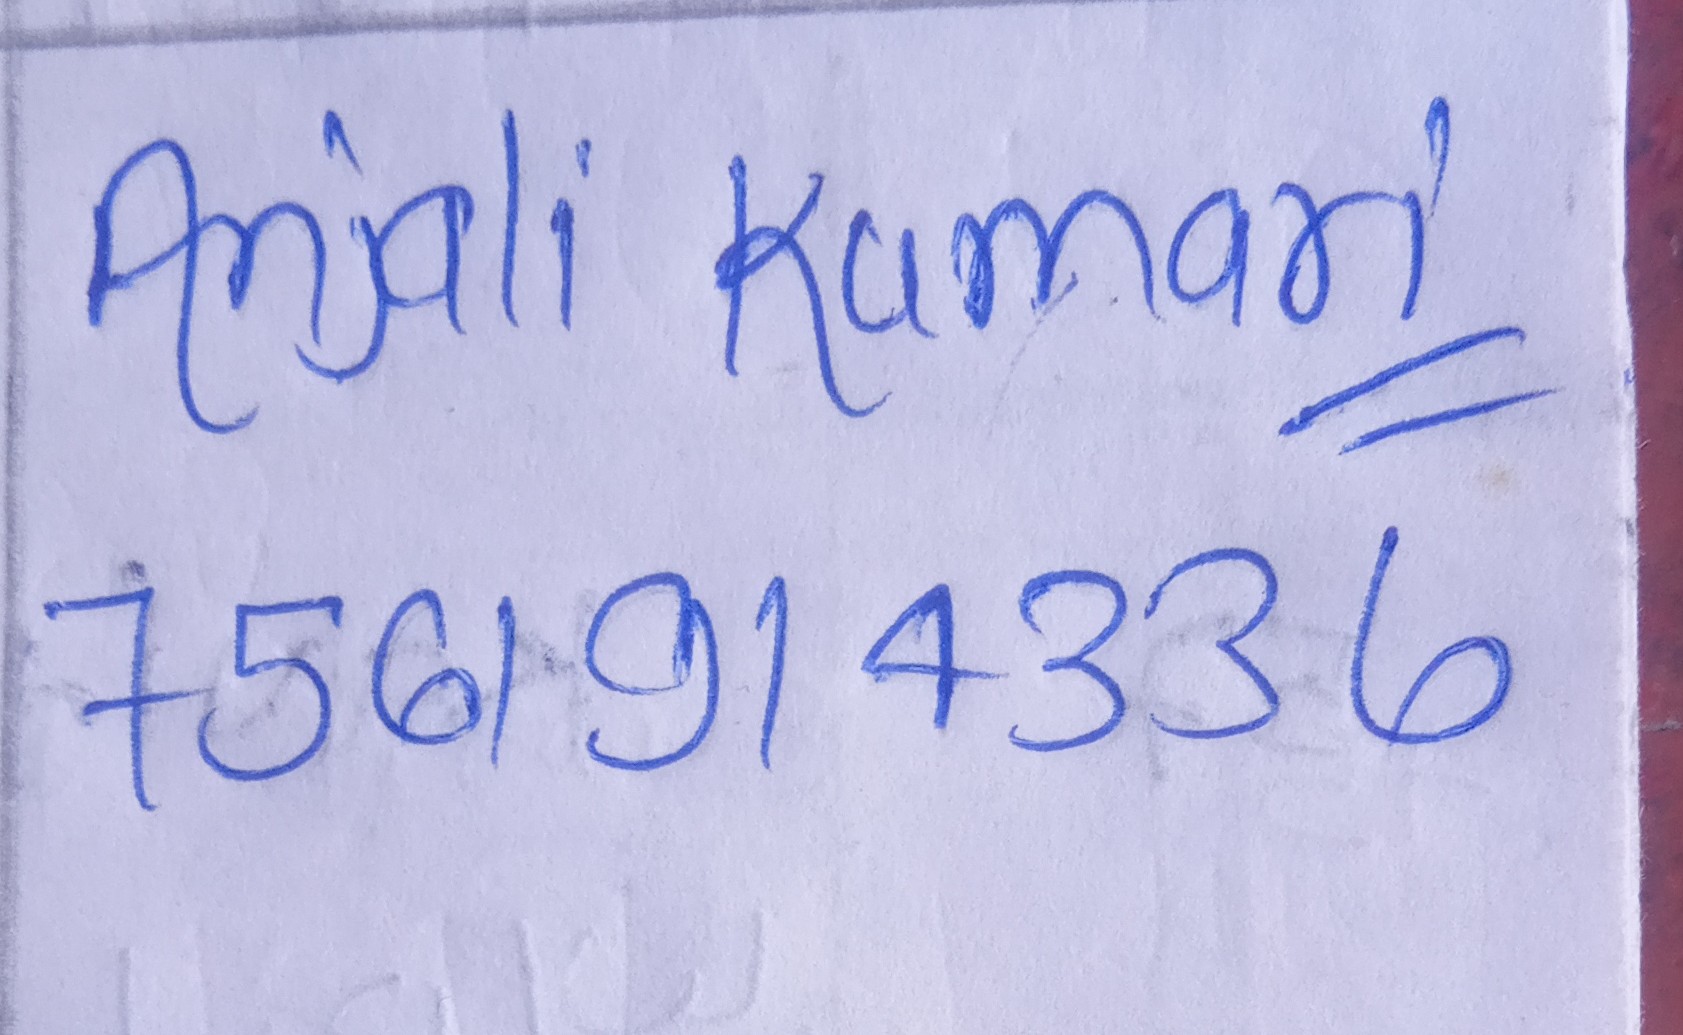 Anjali Kumari
7561914336